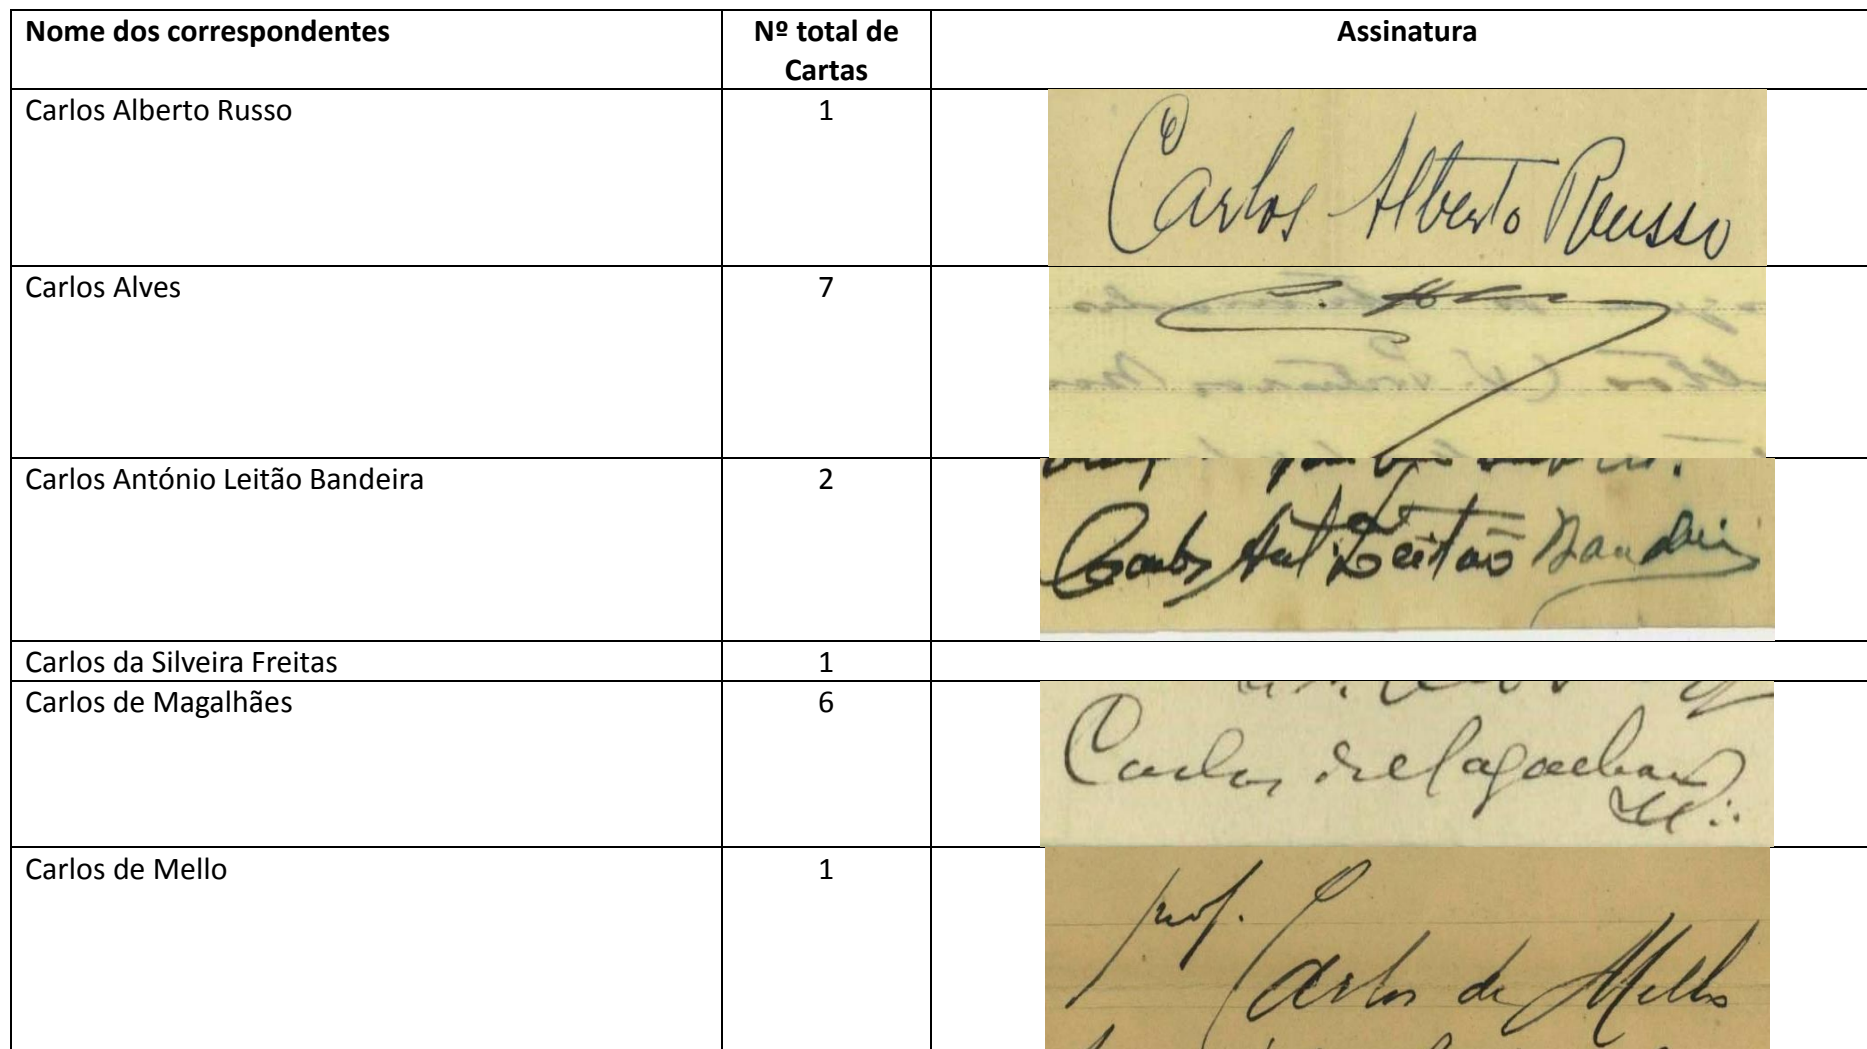 Nome dos correspondentes
Nº total de
Cartas
Assinatura
Carlos Alberto Russo
1
Carlos Alberto Russo
Carlos Alves
7
C. Alves
Carlos António Leitão Bandeira
2
Carlos Ant Leitão Bandeira
Carlos da Silveira Freitas
1
Carlos de Magalhães
6
Carlos de Magalhães
Carlos de Mello
1
prof.
Carlos de Mello